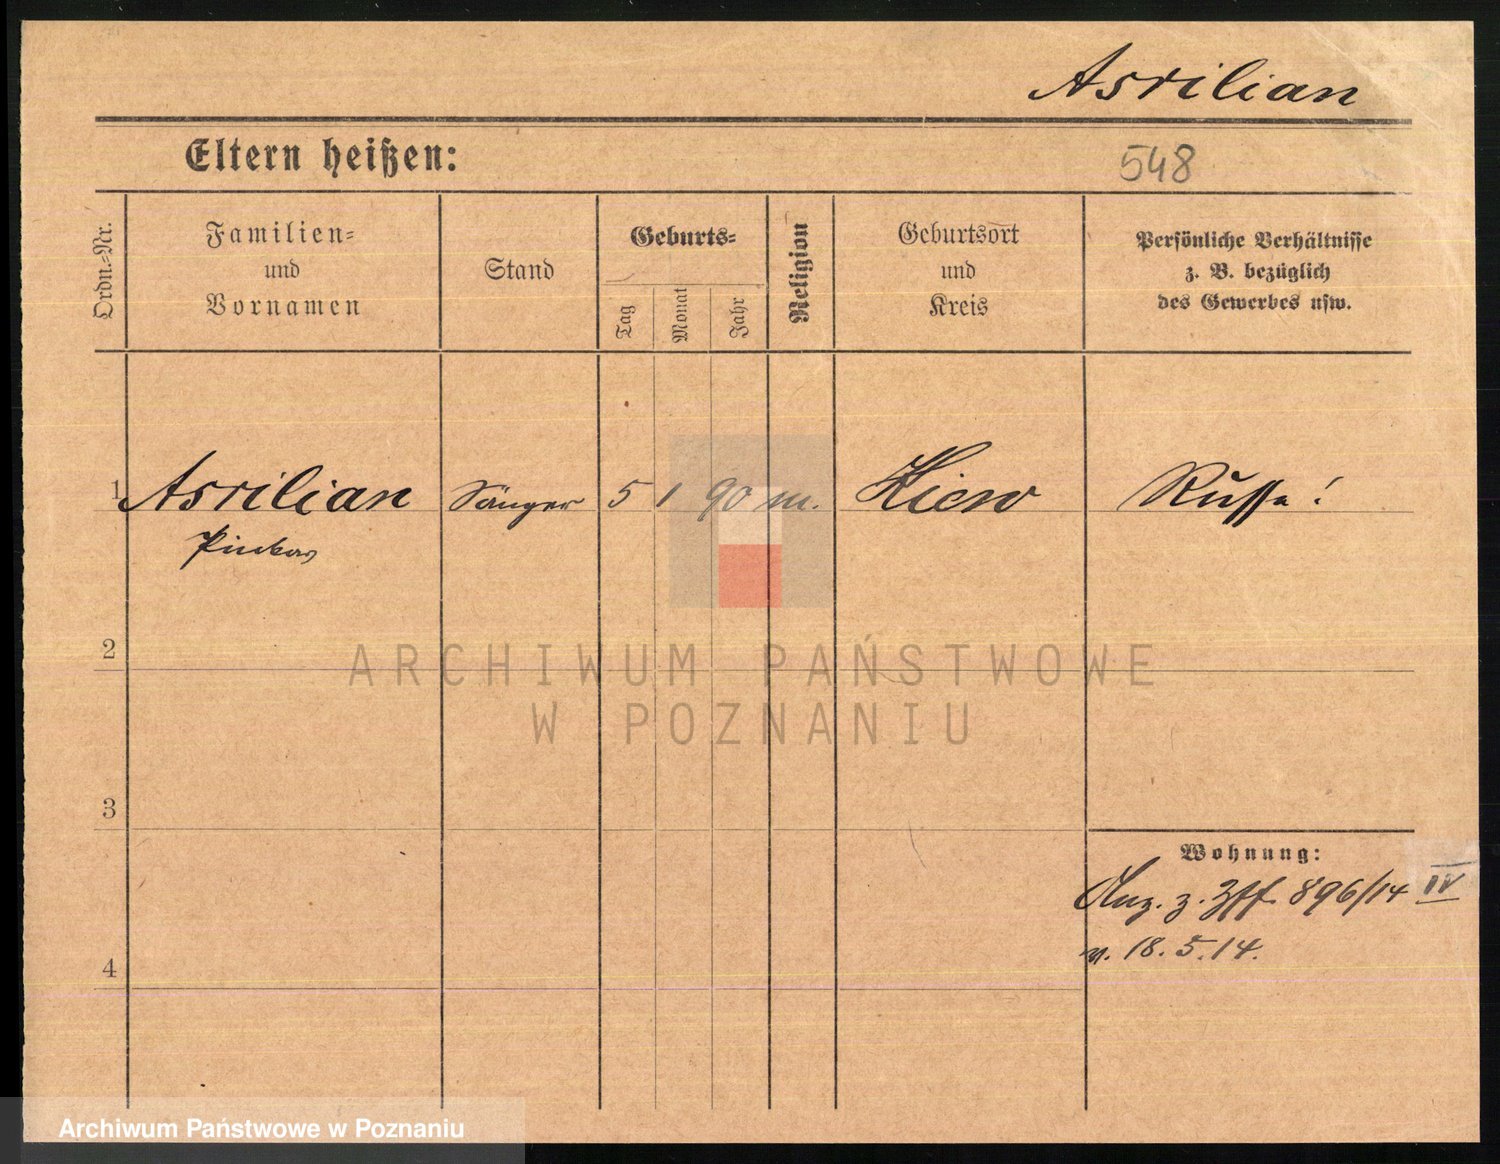 Asrilian
Eltern heißen:
548
Ordn.-Nr.
Familien-
und
Vornamen
Stand
Geburts-
Tag
Monat
Jahr
Religion
Geburtsort
und
Kreis
Persönliche Verhältnisse
z. B. bezüglich
des Gewerbes usw.
1 Asrilian Sänger 5 1 90 m. Kiew Russe!
Pinkas
2
ARCHIWUM PAŃSTWOWE
W POZNANIU
3
Wohnung:
Anz. z. 896/14 IV
v. 18.5.14.
4
Archiwum Państwowe w Poznaniu